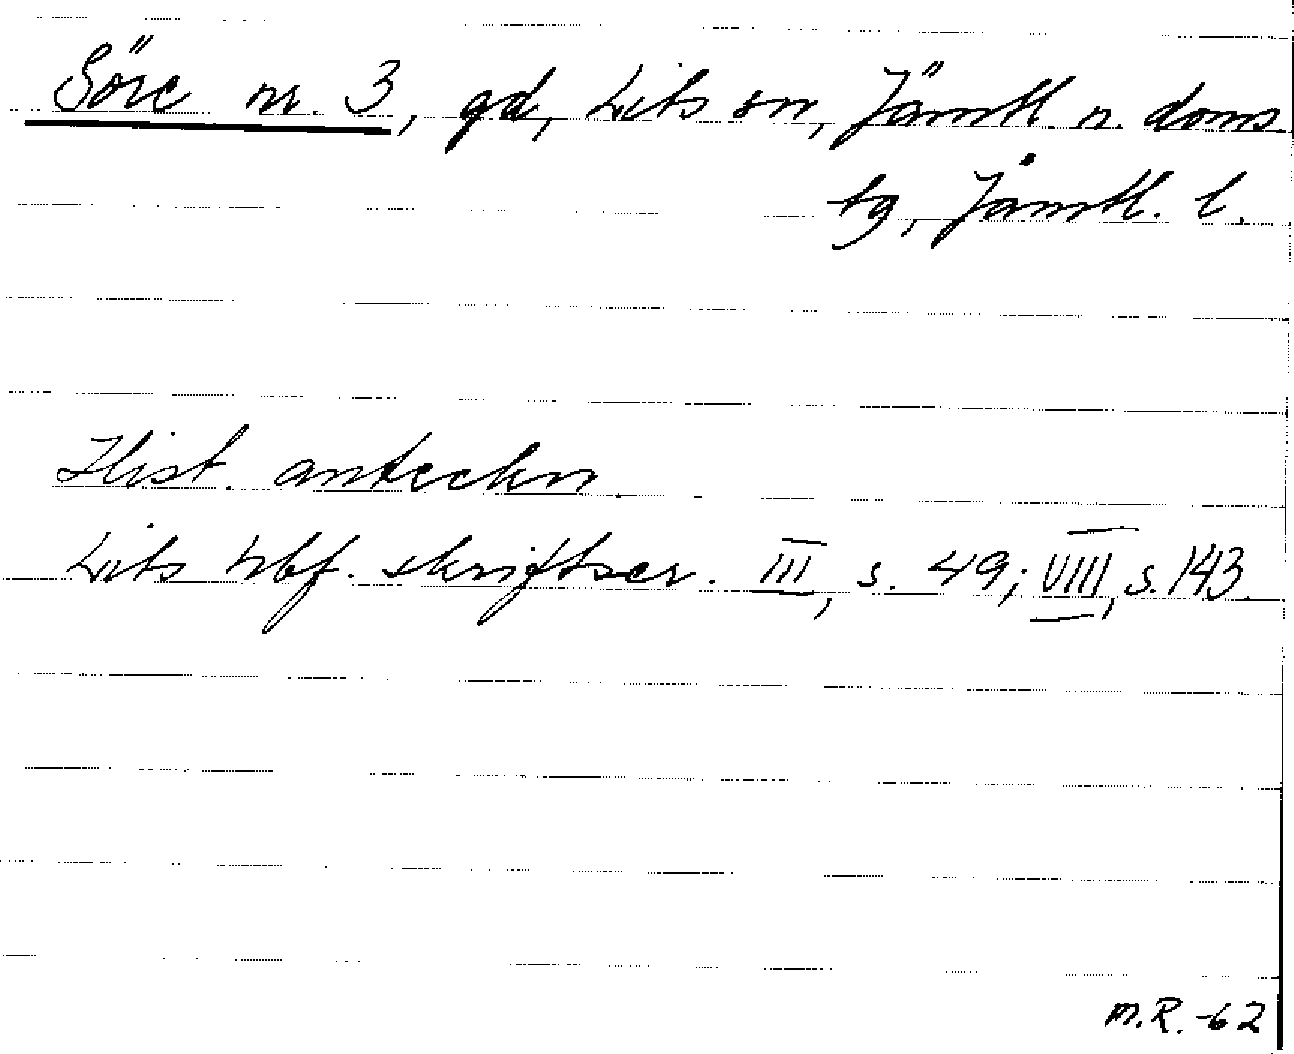 Söre nr. 3, gd, Lits sn, Jämtl n. doms
tg, Jämtl. l.
Hist. anteckn.
Lits hbf. skriftser. III, s. 49; VIII, s. 143.
M.R. -62